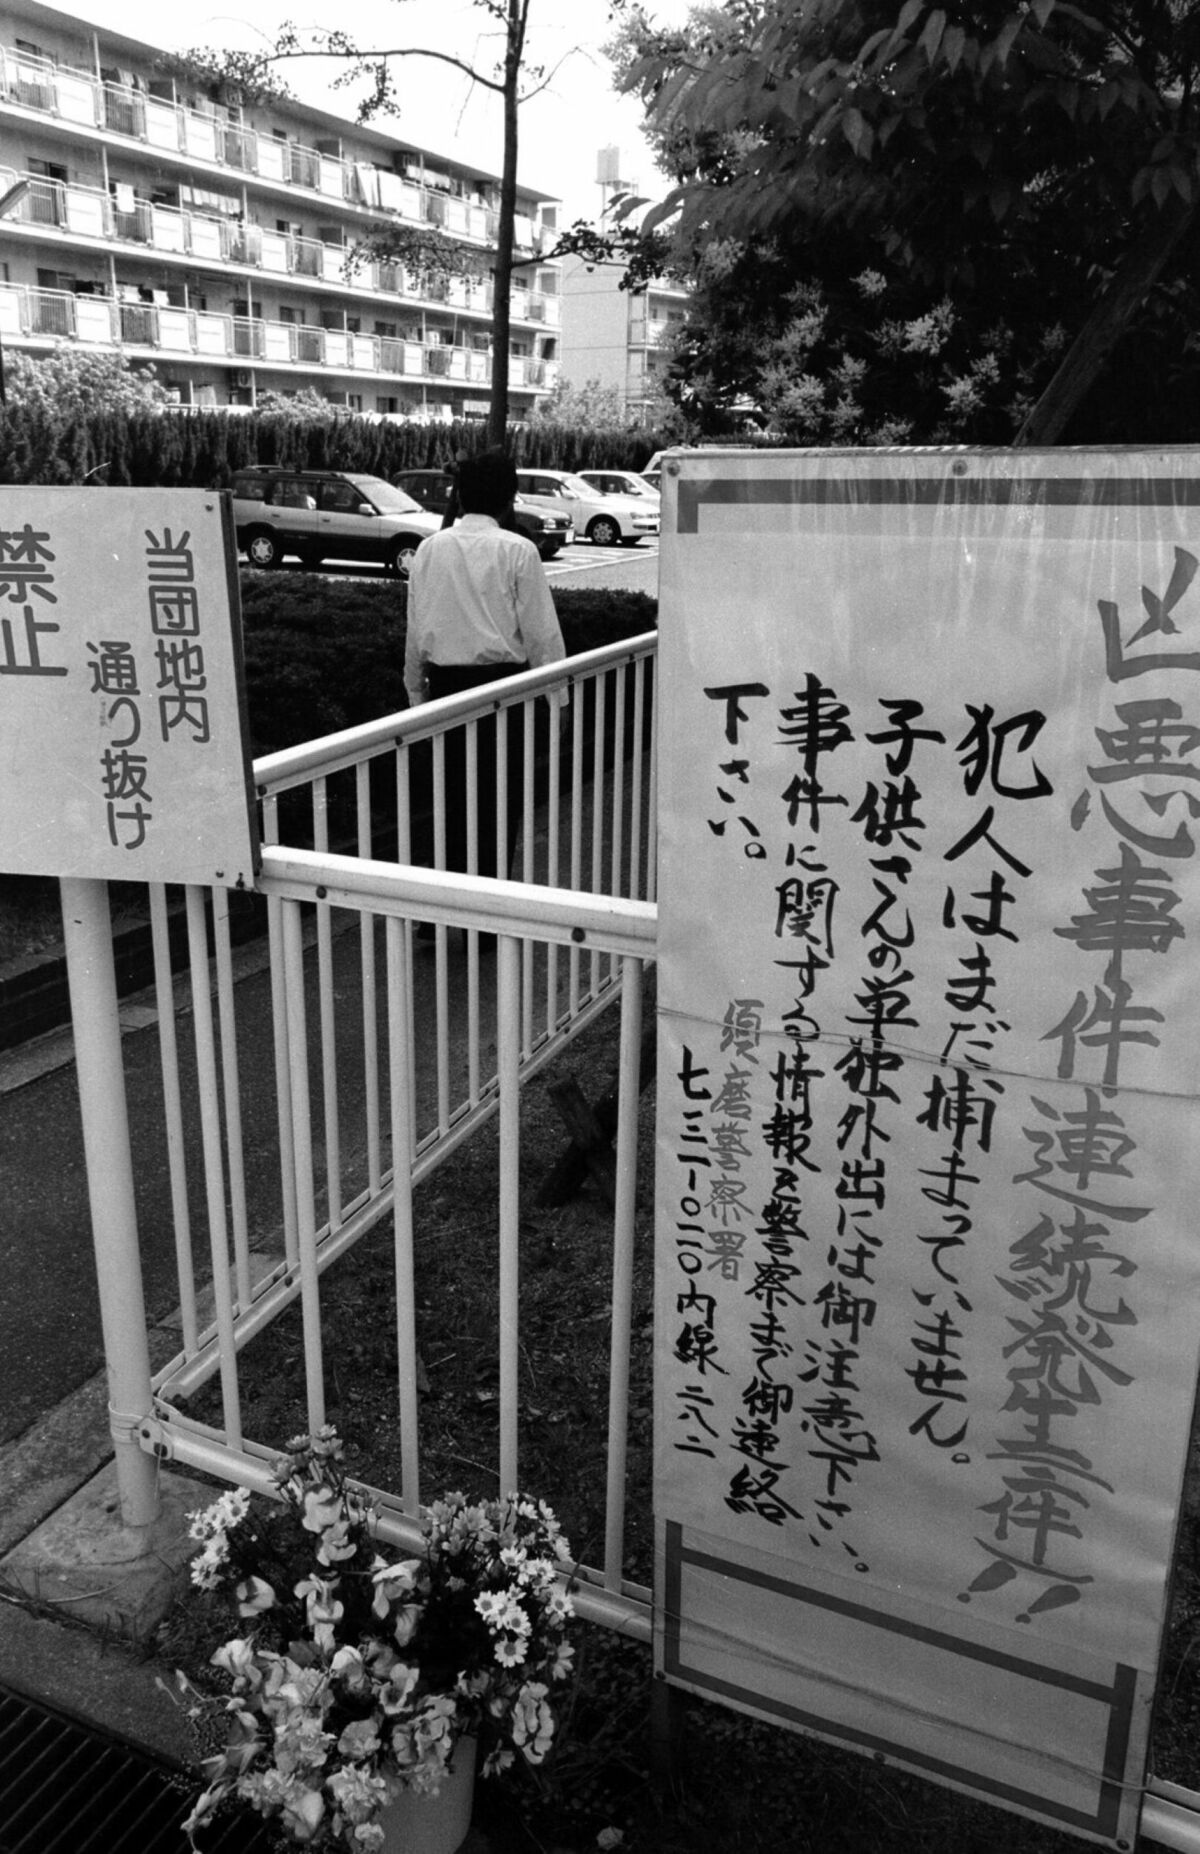 当団地内
通り抜け
禁止
凶悪事件連続発生三件!!
犯人はまだ捕まっていません。
子供さんの単独外出には御注意下さい。
事件に関する情報を警察まで御連絡
下さい。
須磨警察署
七三一-〇一一〇内線二八二